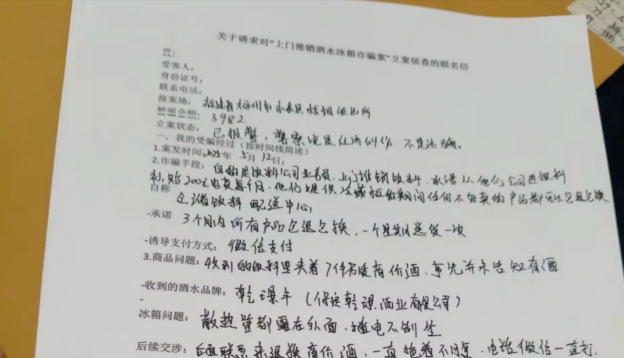 关于请求对"上门推销酒水冰箱诈骗案"立案侦查的联名信
受害人：
身份证号：
联系电话：
报案地：福建省 州市永泰县 派出所
被骗金额：3982
立案状态：已报警，警察说是经济纠纷，不是诈骗。
一、我的受骗经过（按时间线简述）
1.案发时间 2025年5月12日；
2.诈骗手段：自称是饮料公司业务员，上门推销饮料，承诺从他们公司进饮料
补贴200元电费每个月，他们提供冰箱 期间任何不好卖的产品都可以包退包换
自称 仓储饮料 配送中心；
-承诺 3个月内所有产品包退包换，一个星期送货一次
-诱导支付方式：微信支付
3.商品问题：收到的饮料里夹着7件 高价酒，事先并未告知有酒
-收到的酒水品牌：乾 （保定乾 酒业有限公司）
冰箱问题：散热管都露在外面，插电不制冷
后续交涉：联系来退换高价酒，一直 ，电话微信一直